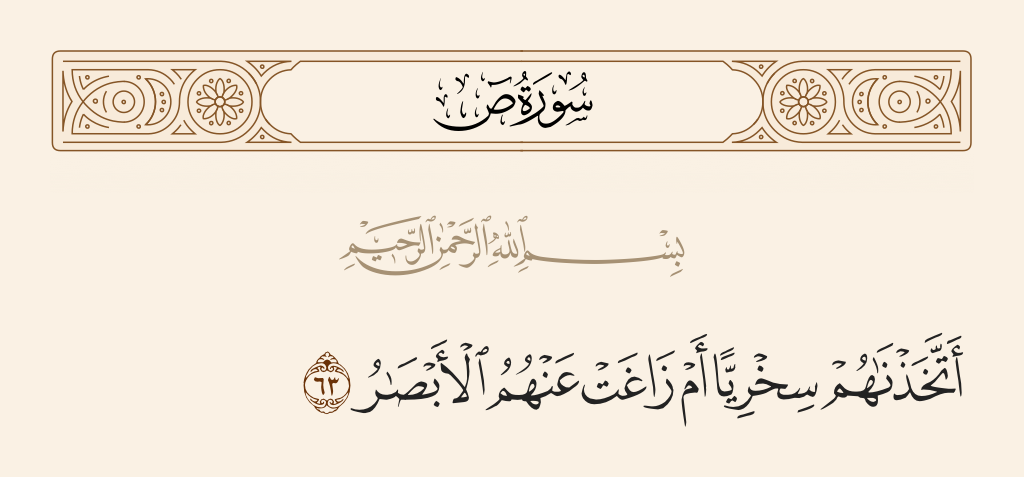 سُورَةُ صٓ
بِسْمِ ٱللَّهِ ٱلرَّحْمَٰنِ ٱلرَّحِيمِ
أَتَّخَذْنَٰهُمْ سِخْرِيًّا أَمْ زَاغَتْ عَنْهُمُ ٱلْأَبْصَٰرُ ٦٣